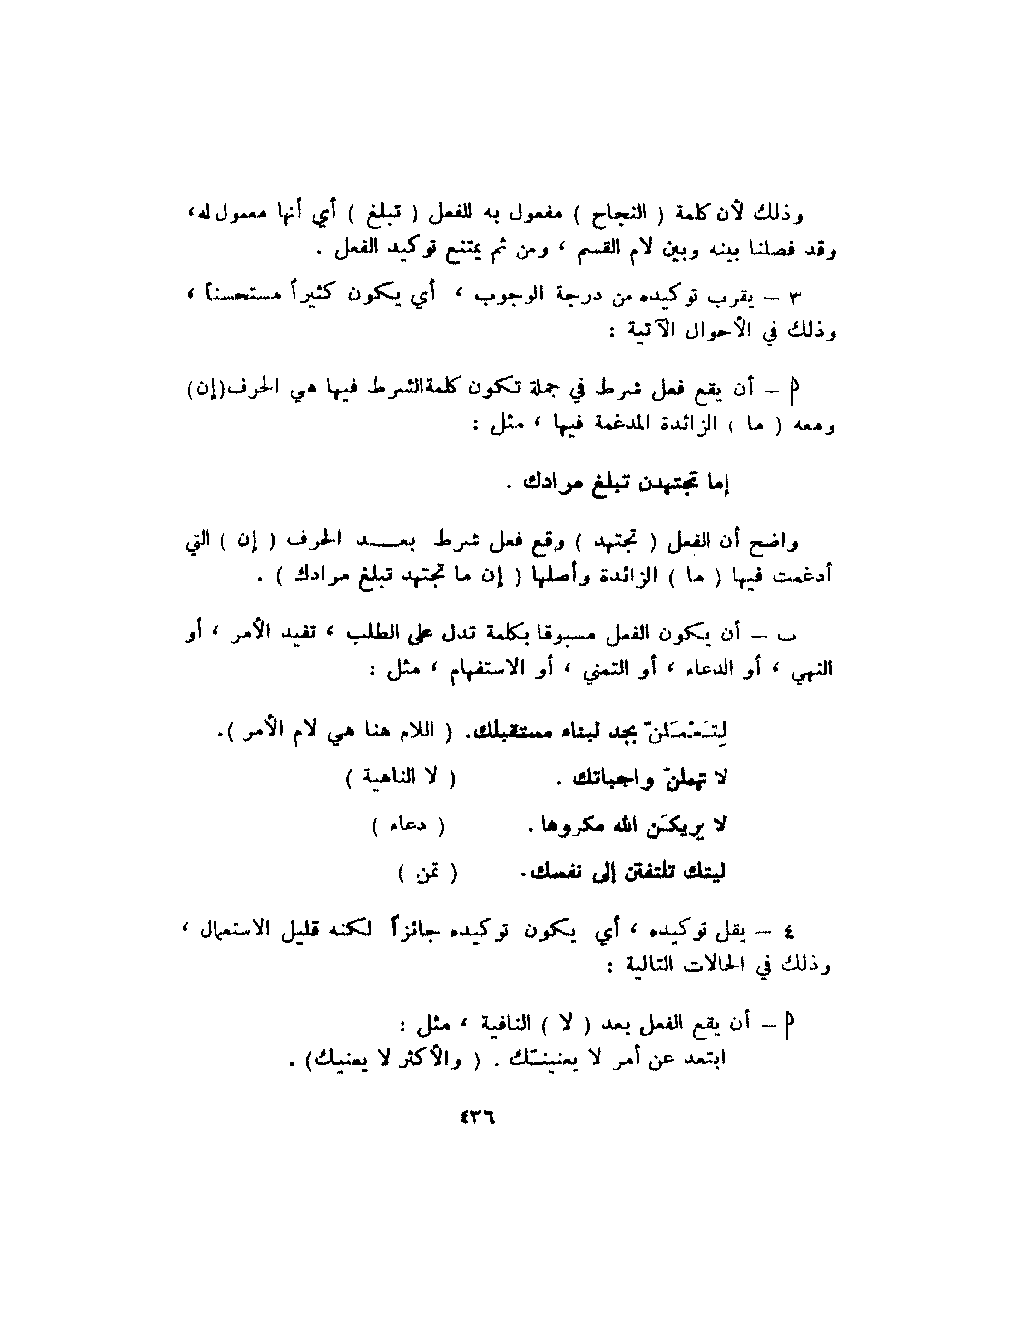 وذلك لأن كلمة ( النجاح ) مفعول به للفعل ( تبلغ ) أي أنها معمول له،
وقد فصلنا بينه وبين لام القسم ، ومن ثم يمتنع توكيد الفعل .
٣ – يقرب توكيده من درجة الوجوب ، أي يكون كثيراً مستحسناً ،
وذلك في الأحوال الآتية :
أ – أن يقع فعل شرط في جملة تكون كلمة الشرط فيها هي الحرف(إن)
ومعه ( ما ) الزائدة المدغمة فيها ، مثل :
إما تجتهدن تبلغ مرادك .
واضح أن الفعل ( تجتهد ) وقع فعل شرط بعـــد الحرف ( إن ) التي
أدغمت فيها ( ما ) الزائدة وأصلها ( إن ما تجتهد تبلغ مرادك ) .
ب – أن يكون الفعل مسبوقا بكلمة تدل على الطلب ، تفيد الأمر ، أو
النهي ، أو الدعاء ، أو التمني ، أو الاستفهام ، مثل :
لِتَعْمَلَنّ بجد لبناء مستقبلك. ( اللام هنا هي لام الأمر ).
لا تهملنّ واجباتك . ( لا الناهية )
لا يريكَن الله مكروها . ( دعاء )
ليتك تلتفتن إلى نفسك. ( تمن )
٤ – يقل توكيده ، أي يكون توكيده جائزاً لكنه قليل الاستعمال ،
وذلك في الحالات التالية :
أ – أن يقع الفعل بعد ( لا ) النافية ، مثل :
ابتعد عن أمر لا يعنينـّك . ( والأكثر لا يعنيك) .
٤٣٦